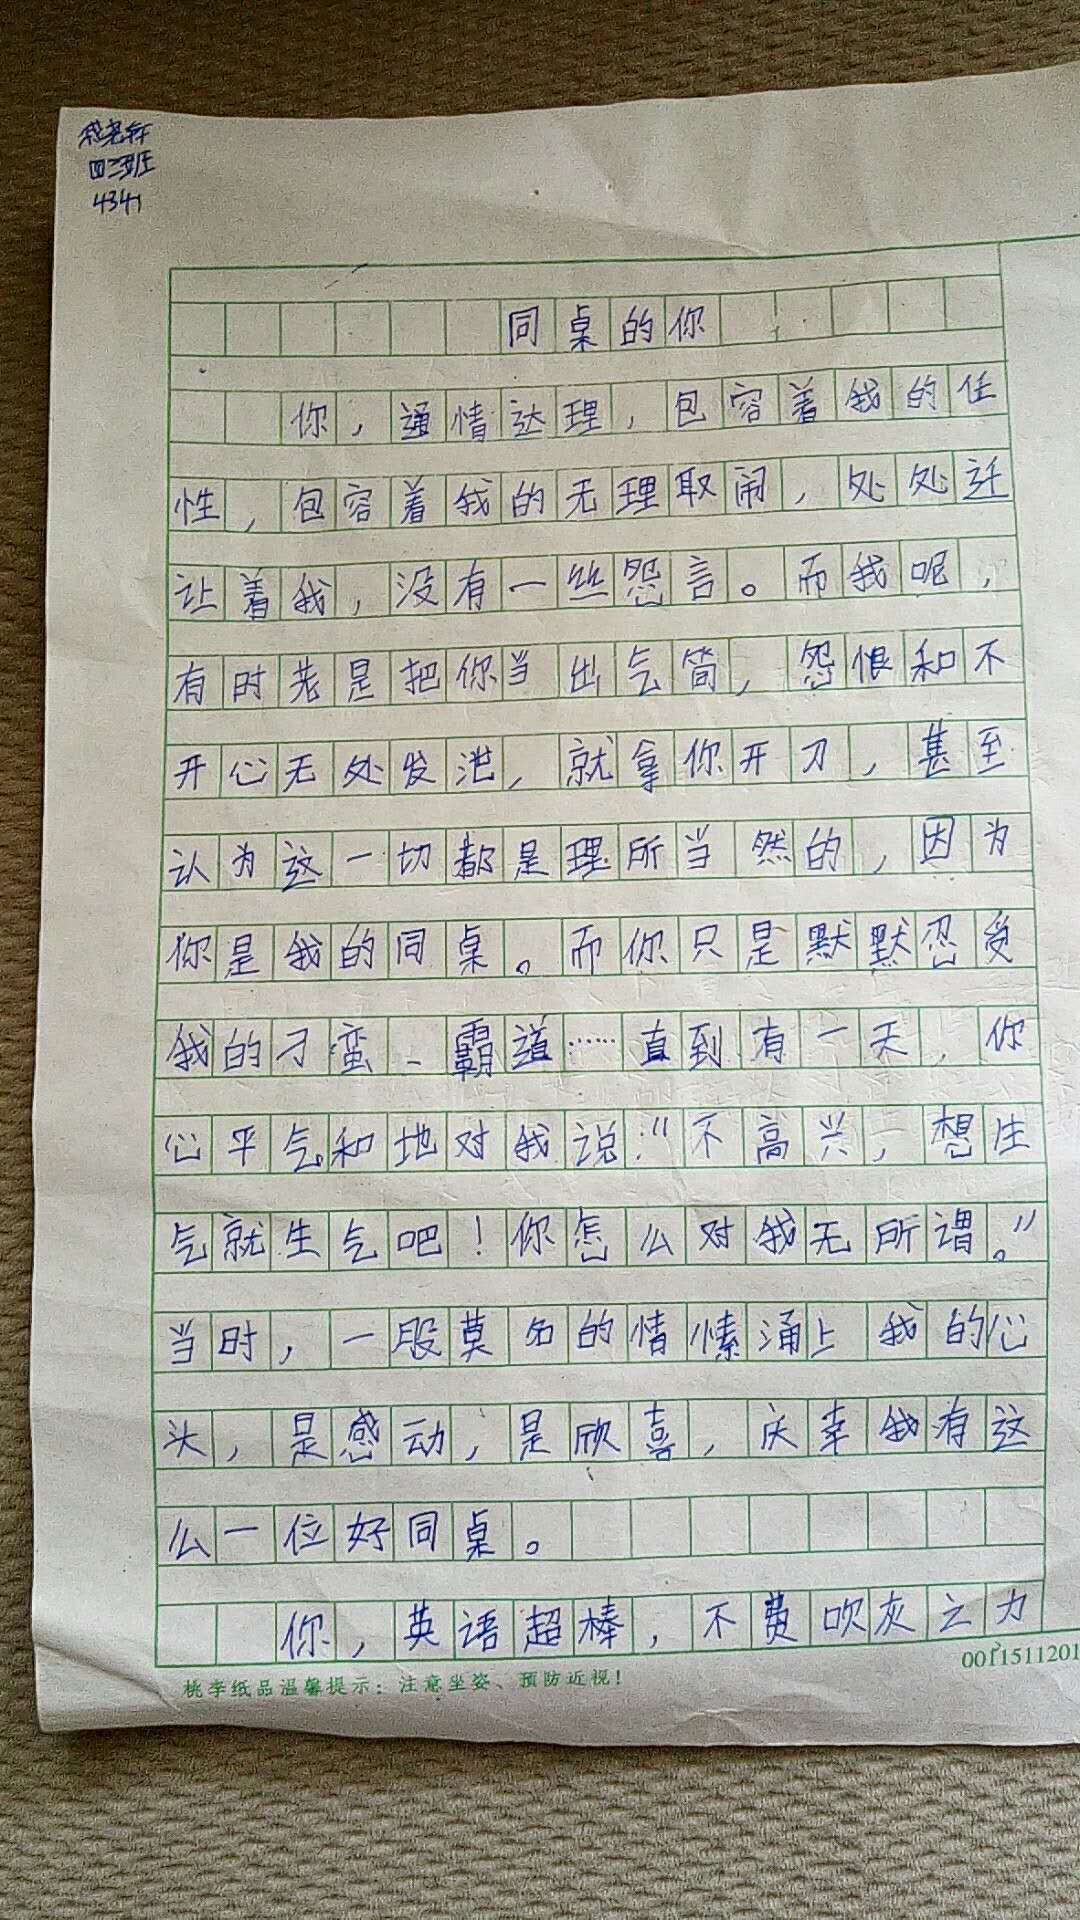 四三班
4341
同桌的你
你，通情达理，包容着我的任
性，包容着我的无理取闹，处处迁
让着我，没有一丝怨言。而我呢，
有时老是把你当出气筒，怨恨和不
开心无处发泄，就拿你开刀，甚至
认为这一切都是理所当然的，因为
你是我的同桌。而你只是默默忍受
我的刁蛮、霸道……直到有一天，你
心平气和地对我说：“不高兴，想生
气就生气吧！你怎么对我无所谓。”
当时，一股莫名的情愫涌上我的心
头，是感动，是欣喜，庆幸我有这
么一位好同桌。
你，英语超棒，不费吹灰之力
桃李纸品温馨提示：注意坐姿、预防近视！
0011511201